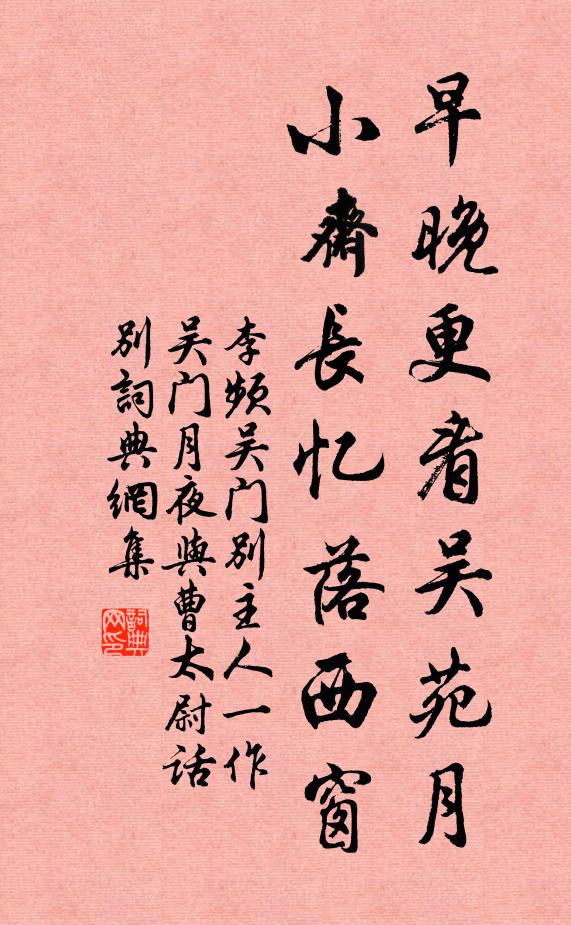 早晚更看吴苑月
小齋長忆落西窗
李频吴门别主人一作
吴门月夜與曹太尉話
别詞典網集
詞典
网印